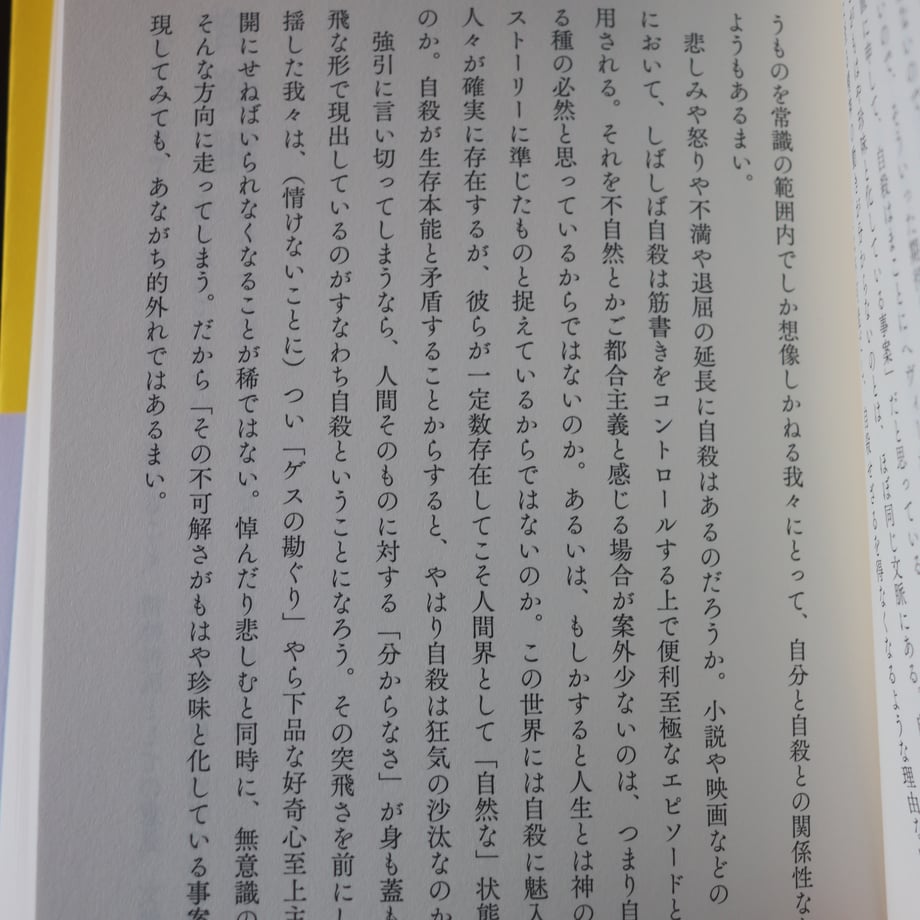 うものを常識の範囲内でしか想像しかねる我々にとって、自分と自殺との関係性な
ようもあるまい。
悲しみや怒りや不満や退屈の延長に自殺はあるのだろうか。小説や映画などの
において、しばしば自殺は筋書きをコントロールする上で便利至極なエピソードと
用される。それを不自然とかご都合主義と感じる場合が案外少ないのは、つまり自
る種の必然と思っているからではないのか。あるいは、もしかすると人生とは神の
ストーリーに準じたものと捉えているからではないのか。この世界には自殺に魅入
人々が確実に存在するが、彼らが一定数存在してこそ人間界として「自然な」状態
のか。自殺が生存本能と矛盾することからすると、やはり自殺は狂気の沙汰なのか
強引に言い切ってしまうなら、人間そのものに対する「分からなさ」が身も蓋も
飛な形で現出しているのがすなわち自殺ということになろう。その突飛さを前にし
揺した我々は、（情けないことに）つい「ゲスの勘ぐり」やら下品な好奇心至上主
開にせねばいられなくなることが稀ではない。悼んだり悲しむと同時に、無意識の
そんな方向に走ってしまう。だから「その不可解さがもはや珍味と化している事案
現してみても、あながち的外れではあるまい。